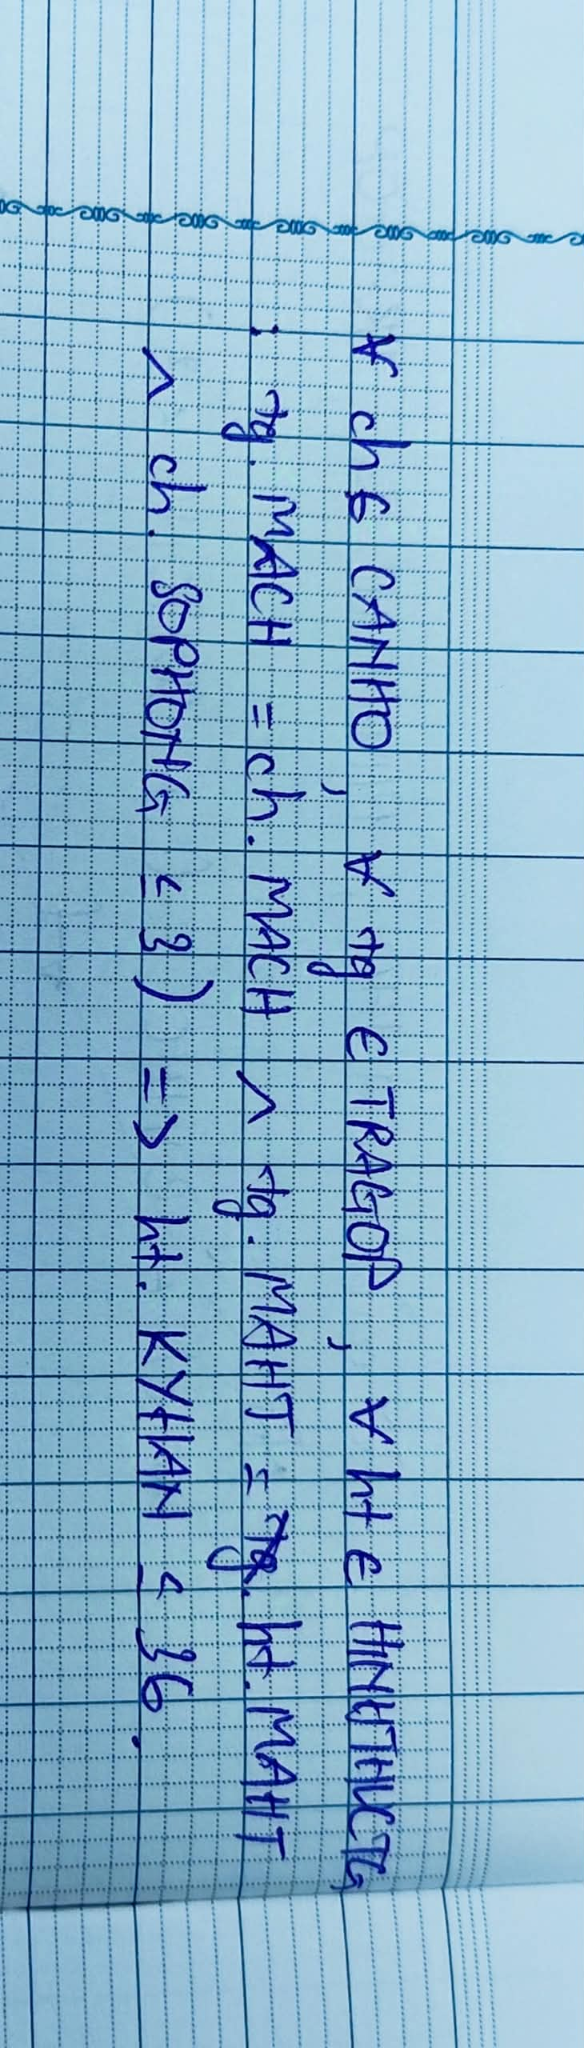 ∀ ch ∈ CANHO, ∀ tg ∈ TRAGOP, ∀ ht ∈ HINHTHUCTG
: tg.MACH = ch.MACH ∧ tg.MAHT = ht.MAHT
∧ ch.SOPHONG ≤ 3) => ht.KYHAN ≤ 36.